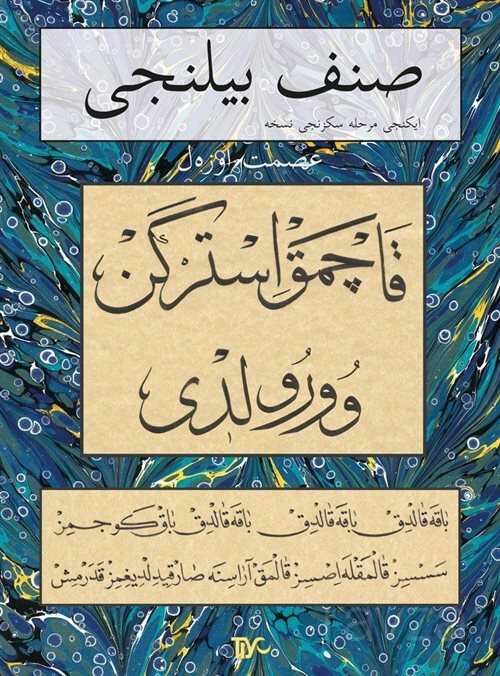 صنف بيلنجى
ايكنجى مرحله سكزنجى نسخه
عصمت اوزەل
قَاچمَقْ اِسْتَرکَنْ
وُورُولْدِى
باقه قالدِق باقه قالدِق باقه قالدِق باق كوجمز
سسسِز قالمقله اِصسِز قالمق آراسنه صارقيديلديغمز قدرمش
TİYO